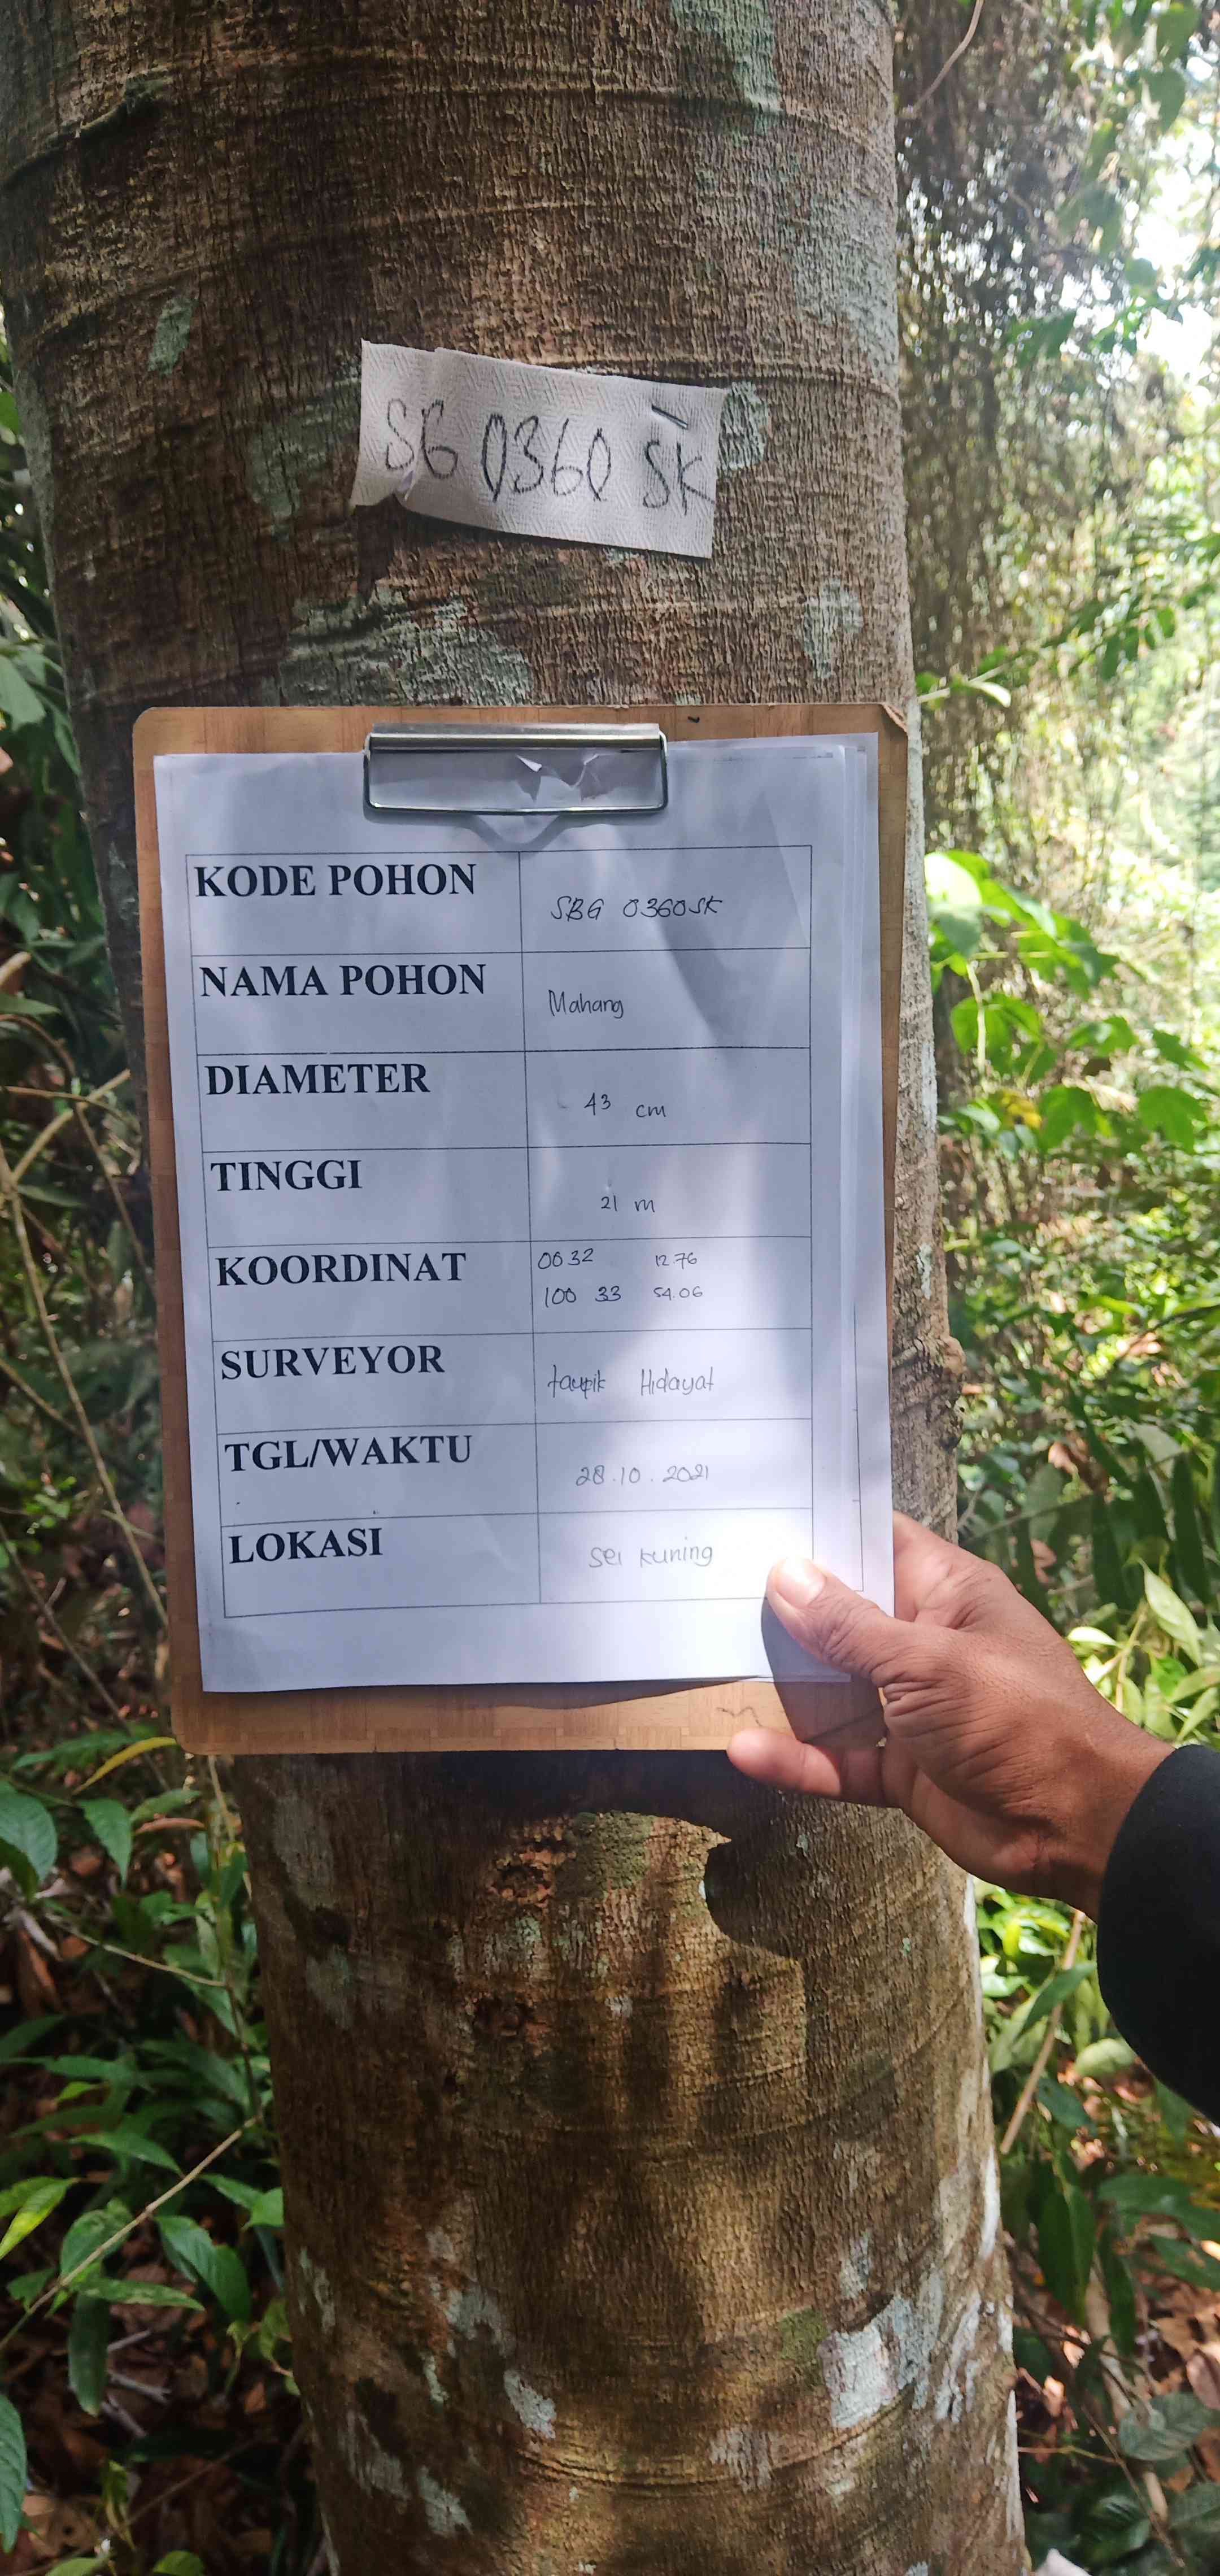 SG 0360 SK
KODE POHON SBG 0360SK
NAMA POHON Mahang
DIAMETER 43 cm
TINGGI 21 m
KOORDINAT 00 32 12.76
100 33 54.06
SURVEYOR taupik Hidayat
TGL/WAKTU 28.10.2021
LOKASI Sei kuning